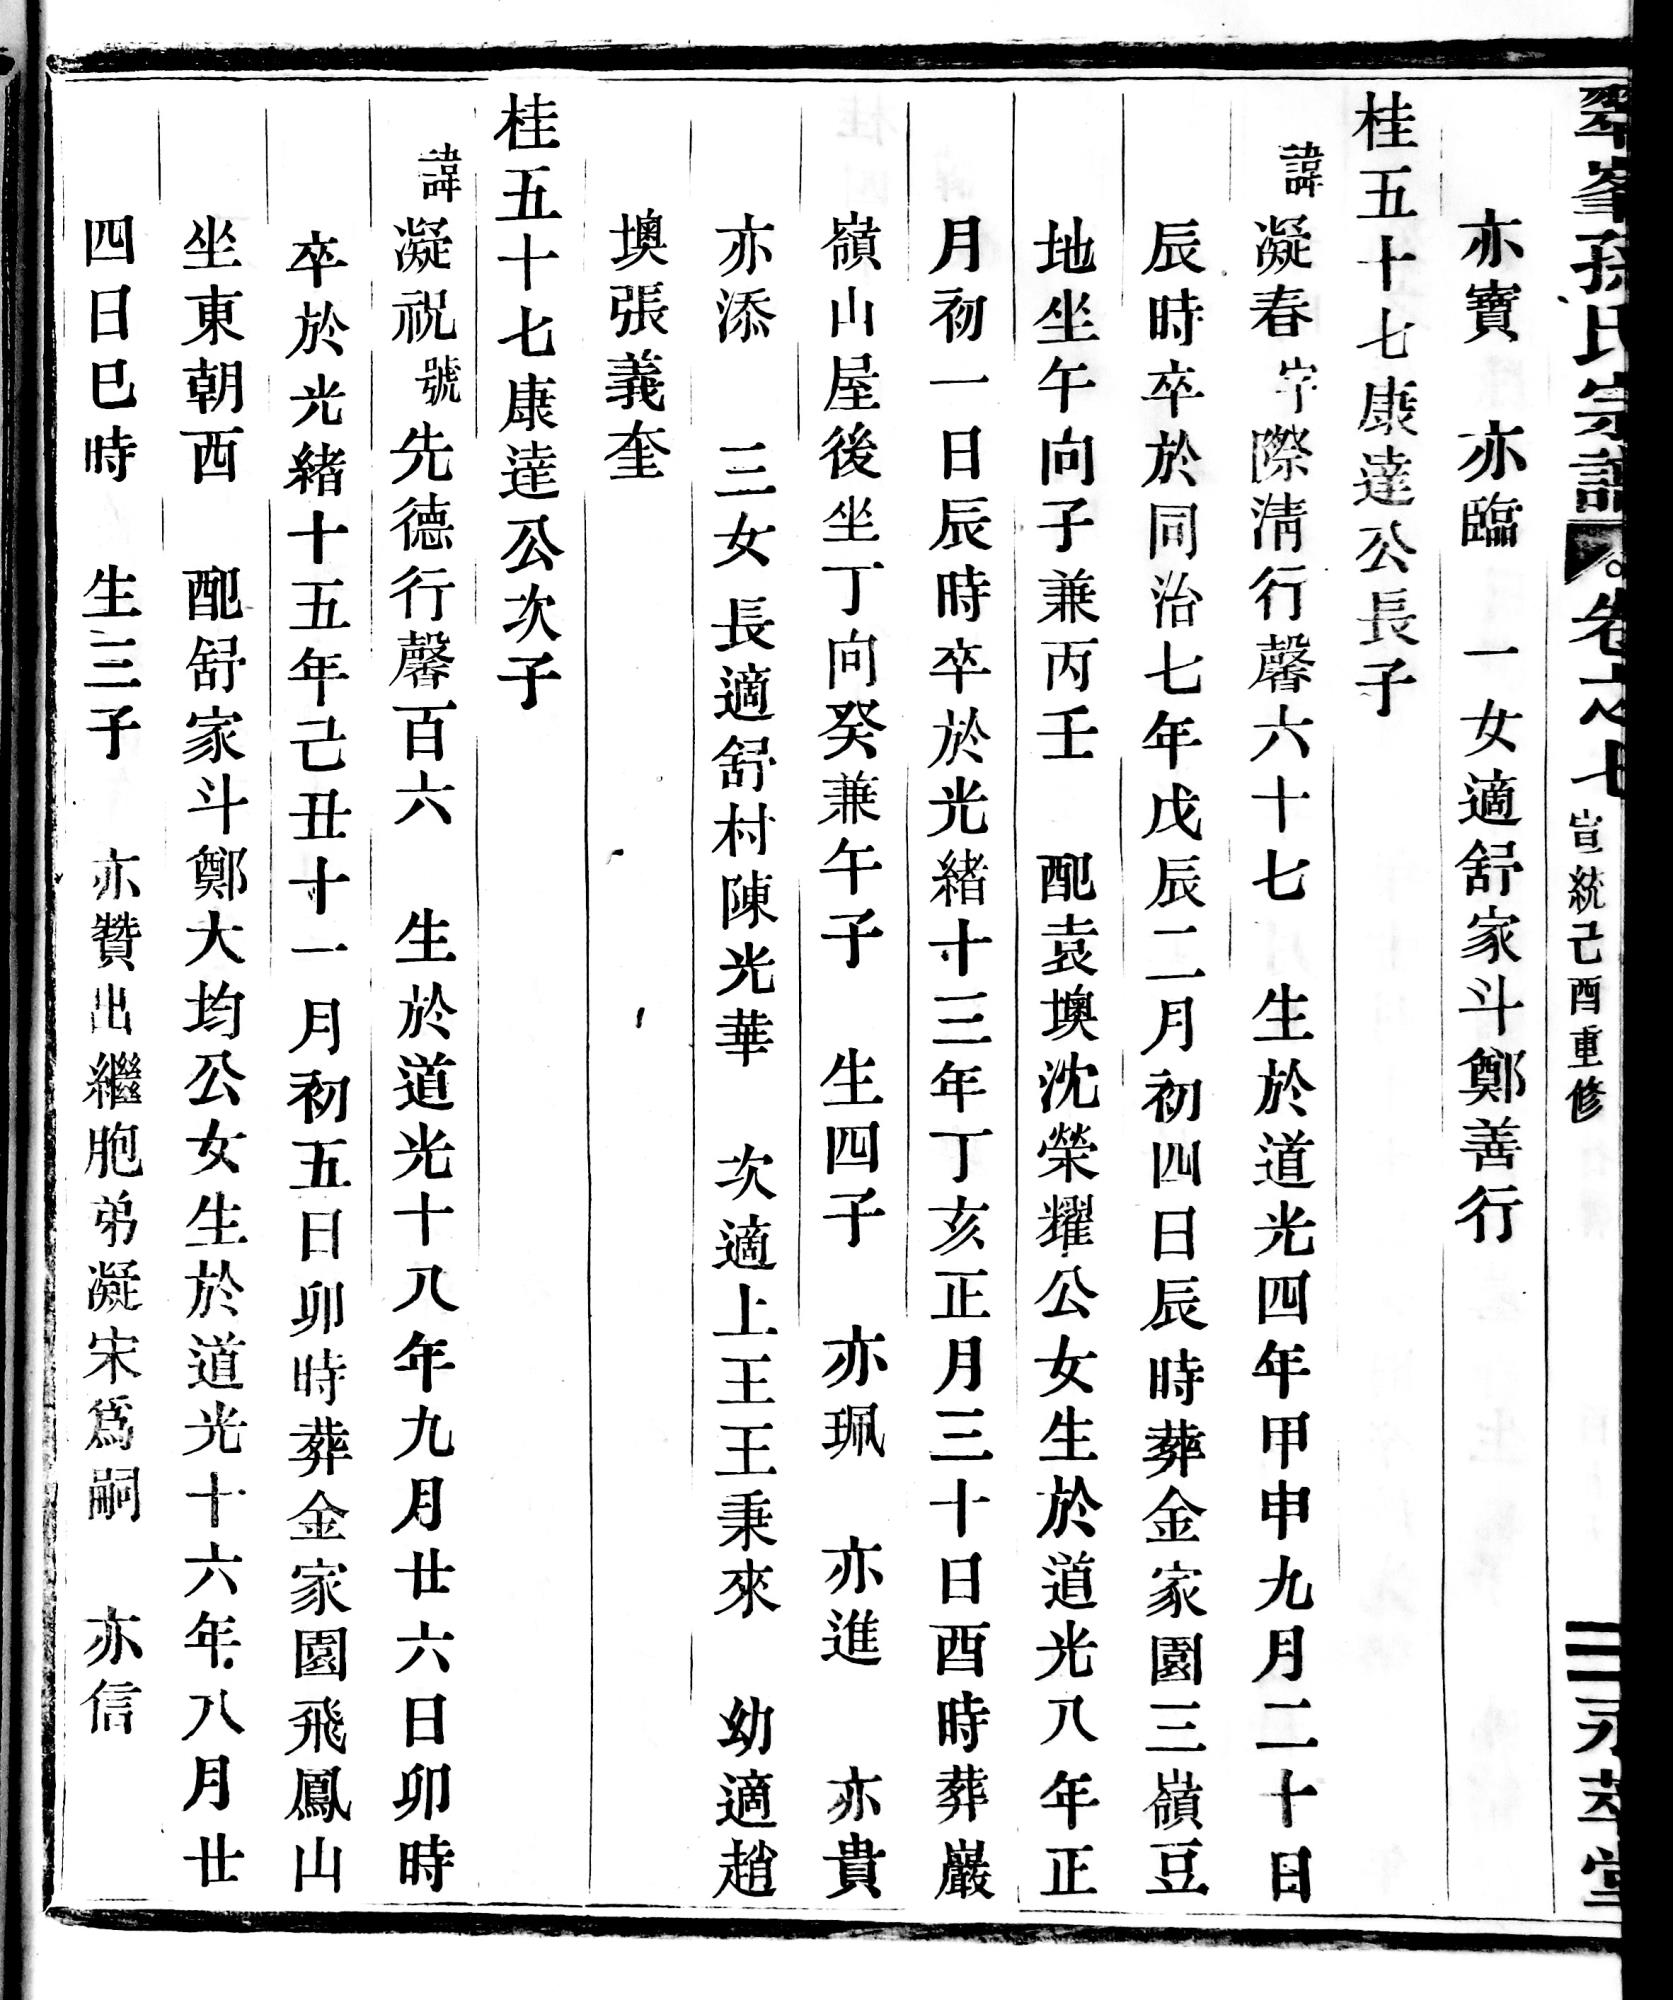 翠峯孫氏宗譜 卷之七 宣統己酉重修 永萃堂
亦寶 亦臨 一女適舒家斗鄭善行
桂五十七康達公長子
諱凝春字際淸行馨六十七 生於道光四年甲申九月二十日
辰時卒於同治七年戊辰二月初四日辰時葬金家園三嶺豆
地坐午向子兼丙壬 配袁墺沈榮耀公女生於道光八年正
月初一日辰時卒於光緒十三年丁亥正月三十日酉時葬巖
嶺山屋後坐丁向癸兼午子 生四子 亦珮 亦進 亦貴
亦添 三女 長適舒村陳光華 次適上王王秉來 幼適趙
墺張義奎
桂五十七康達公次子
諱凝祝號先德行馨百六 生於道光十八年九月廿六日卯時
卒於光緒十五年己丑十一月初五日卯時葬金家園飛鳳山
坐東朝西 配舒家斗鄭大均公女生於道光十六年八月廿
四日巳時 生三子 亦贊出繼胞弟凝宋爲嗣 亦信